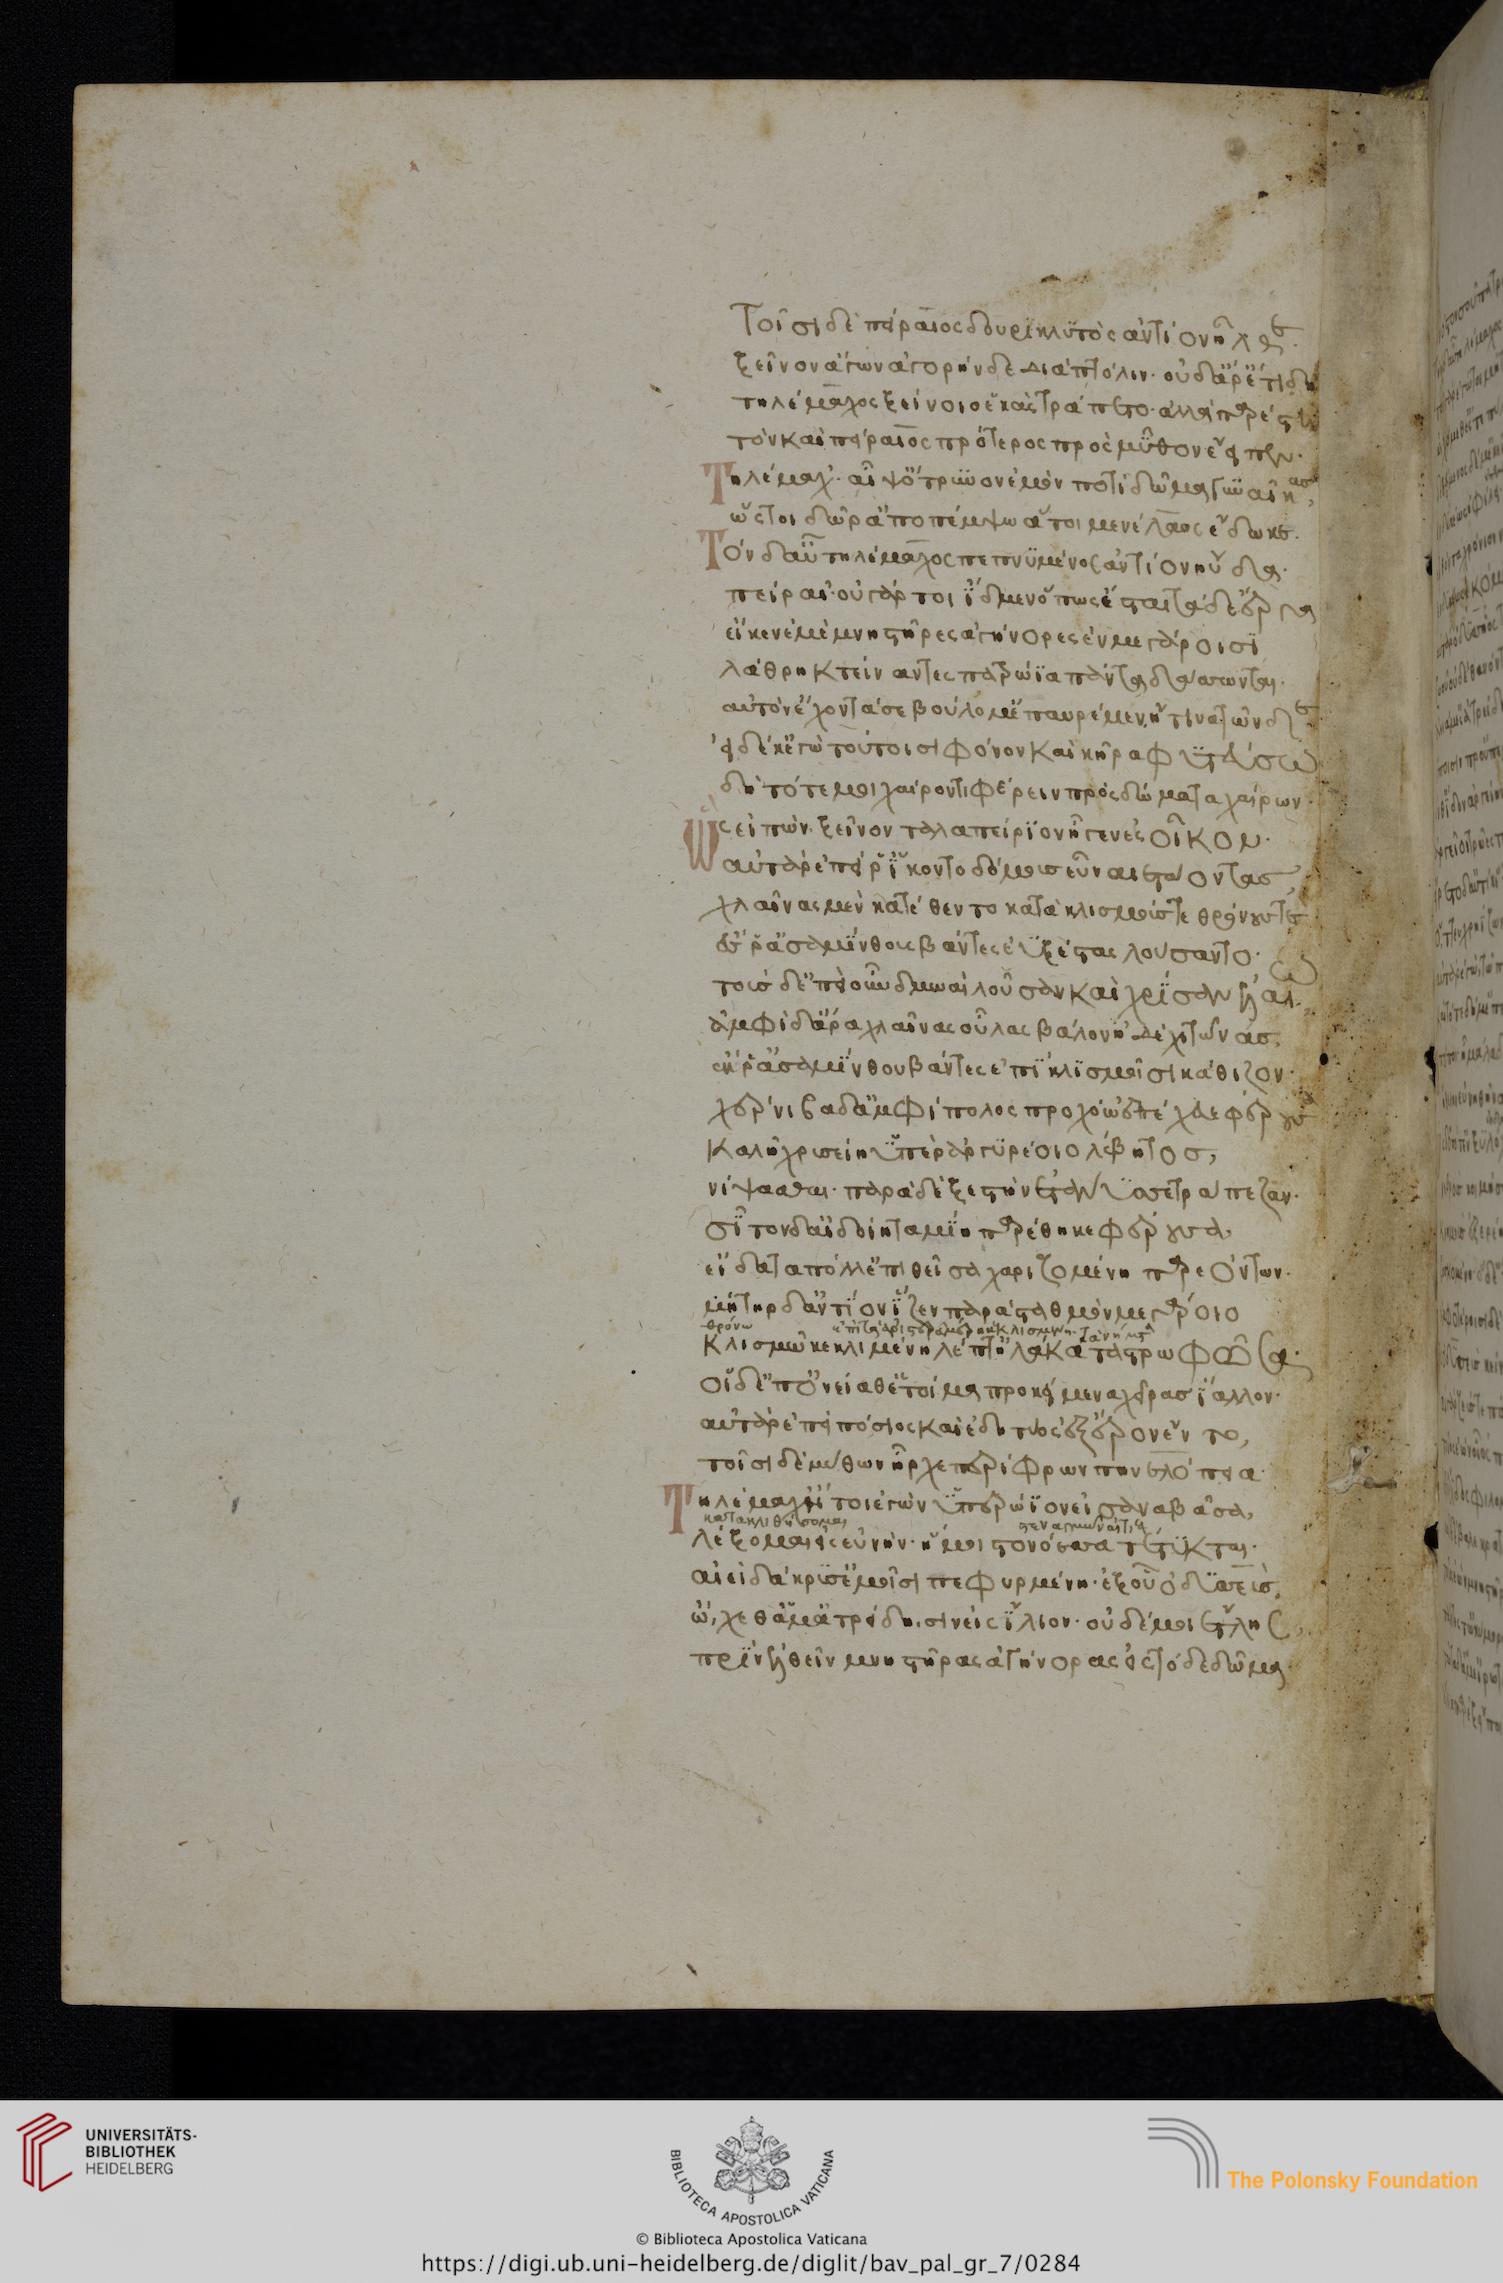 Τοῖσι δὲ πείραιος δουρὶ κλυτὸς ἀντίον ἦλθε·
ξεῖνον ἄγων ἀγορὴν δὲ διὰ πτόλιν· οὐδ' ἄρ' ἔτι δὴν
τηλέμαχος ξείνοιο ἑκὰς τράπετο· ἀλλὰ παρέστη
τὸν καὶ πείραιος πρότερος πρὸς μῦθον ἔειπεν·
Τηλέμαχ'. αἶψ' ὄτρυνον ἐμὸν ποτὶ δῶμα γυναῖκας,
ὥς τοι δῶρ' ἀποπέμψω ἅ τοι μενέλαος ἔδωκε.
Τὸν δ' αὖ τηλέμαχος πεπνυμένος ἀντίον ηὔδα·
πείραι' οὐ γάρ τοι ἴδμεν ὅπως ἔσται τάδε ἔργα
εἴ κεν ἐμὲ μνηστῆρες ἀγήνορες ἐν μεγάροισι
λάθρη κτείναντες πατρώϊα πάντα δάσωνται·
αὐτὸν ἔχοντα σε βούλομ' ἐπαυρέμεν, ἤ τινα τῶνδε
εἰ δέ κ' ἐγὼ τούτοισι φόνον καὶ κῆρα φυτεύσω
δὴ τότε μοι χαίροντι φέρειν πρὸς δώματα χαίρων·
Ὣς εἰπὼν ξεῖνον ταλαπείριον ἦγεν ἐς οἶκον·
αὐτὰρ ἐπεί ῥ' ἵκοντο δόμους εὖ ναιετάοντας,
χλαίνας μὲν κατέθεντο κατὰ κλισμούς τε θρόνους τε
ἐς ῥ' ἀσαμίνθους βάντες ἐϋξέστας λούσαντο·
τοὺς δ' ἐπεὶ οὖν δμωαὶ λοῦσαν καὶ χρῖσαν ἐλαίω,
ἀμφὶ δ' ἄρα χλαίνας οὔλας βάλον ἠδὲ χιτῶνας,
ἐκ ῥ' ἀσαμίνθου βάντες ἐπὶ κλισμοῖσι κάθιζον·
χέρνιβα δ' ἀμφίπολος προχόω ἐπέχευε φέρουσα
καλῆ χρυσείη ὑπὲρ ἀργυρέοιο λέβητος,
νίψασθαι· παρὰ δὲ ξεστὴν ἐτάνυσε τράπεζαν·
σῖτον δ' αἰδοίη ταμίη παρέθηκε φέρουσα,
εἴδατα πόλλ' ἐπιθεῖσα χαριζομένη παρεόντων·
μήτηρ δ' ἀντίον ἷζεν παρὰ σταθμὸν μεγάροιο
θρόνω
κλισμῶ κεκλιμένη λέπτ' ἠλάκατα στρωφῶσα·
οἱ δ' ἐπ' ὀνείαθ' ἑτοῖμα προκείμενα χεῖρας ἴαλλον·
αὐτὰρ ἐπεὶ πόσιος καὶ ἐδητύος ἐξ ἔρον ἕντο,
τοῖσι δὲ μύθων ἦρχε περίφρων πηνελόπεια·
Τηλέμαχ' ἤτοι ἐγὼν ὑπερώϊον εἰσαναβᾶσα,
κατακλιθήσομαι
λέξομαι εἰς εὐνὴν· ἥ μοι στονόεσσα τέτυκται·
αἰεὶ δάκρυσ' ἐμοῖσι πεφυρμένη· ἐξ οὗ ὀδυσσεὺς,
ὤ,χεθ' ἅμ' ἀτρείδη,σιν εἰς ἴλιον· οὐδέ μοι ἔτλης,
πρὶν ἐλθεῖν μνηστῆρας ἀγήνορας ἐς τόδε δῶμα·
UNIVERSITÄTS-
BIBLIOTHEK
HEIDELBERG
BIBLIOTECA APOSTOLICA VATICANA
The Polonsky Foundation
© Biblioteca Apostolica Vaticana
https://digi.ub.uni-heidelberg.de/diglit/bav_pal_gr_7/0284